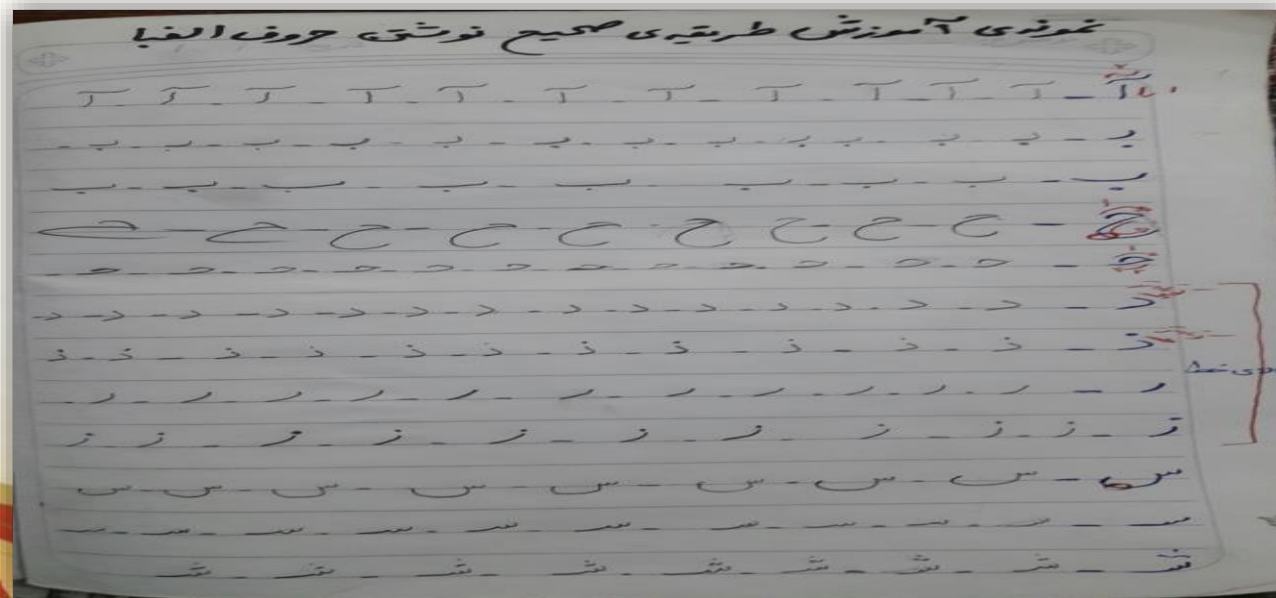 نمونه‌ی آموزش طریقه‌ی صحیح نوشتن حروف الفبا
آ - آ - آ - آ - آ - آ - آ - آ - آ - آ - آ - آ
بـ - بـ - بـ - بـ - بـ - بـ - بـ - بـ - بـ - بـ - بـ - بـ
ب - ب - ب - ب - ب - ب - ب - ب - ب
ح - ح - ح - ح - ح - ح - ح - ح - ح - ح
حـ - حـ - حـ - حـ - حـ - حـ - حـ - حـ - حـ - حـ - حـ - حـ - حـ
د - د - د - د - د - د - د - د - د - د - د - د - د - د
ذ - ذ - ذ - ذ - ذ - ذ - ذ - ذ - ذ - ذ - ذ - ذ
ر - ر - ر - ر - ر - ر - ر - ر - ر - ر - ر - ر
ز - ز - ز - ز - ز - ز - ز - ز - ز - ز - ز
س - س - س - س - س - س - س - س - س
سـ - سـ - سـ - سـ - سـ - سـ - سـ - سـ - سـ - سـ - سـ
شـ - شـ - شـ - شـ - شـ - شـ - شـ - شـ - شـ